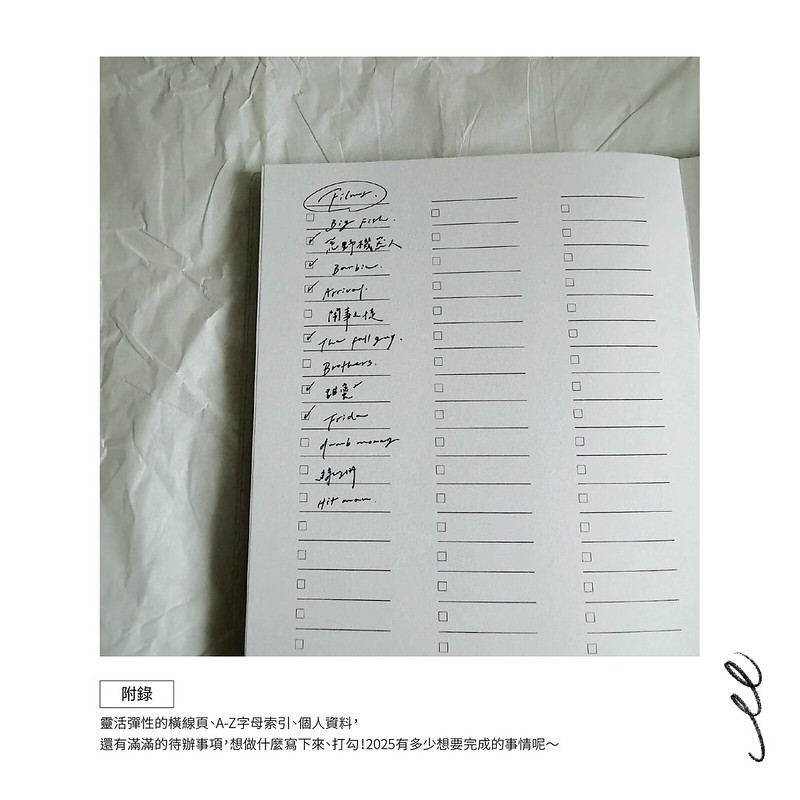 Films.
Big Fish.
荒野機器人
Barbie.
Arrival.
The fall guy.
Brothers.
甜蜜
Frida
dumb money
Hit man.
附錄
靈活彈性的橫線頁、A-Z字母索引、個人資料，
還有滿滿的待辦事項，想做什麼寫下來、打勾！2025有多少想要完成的事情呢～